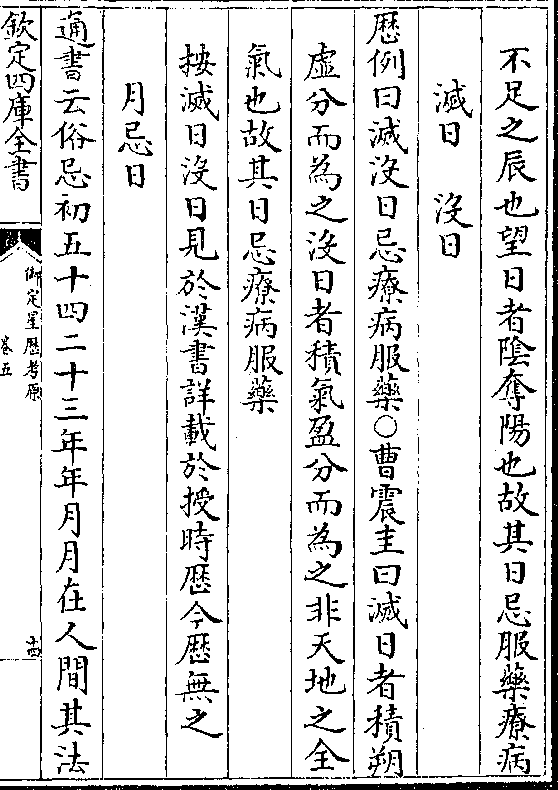 不足之辰也望日者陰奪陽也故其日忌服藥療病
滅日　沒日
厯例曰滅沒日忌療病服藥○曹震圭曰滅日者積朔
虛分而為之沒日者積氣盈分而為之非天地之全
氣也故其日忌療病服藥
按滅日沒日見於漢書詳載於授時厯今厯無之
月忌日
通書云俗忌初五十四二十三年年月月在人間其法
欽定四庫全書
御定星厯考原
卷五
十四